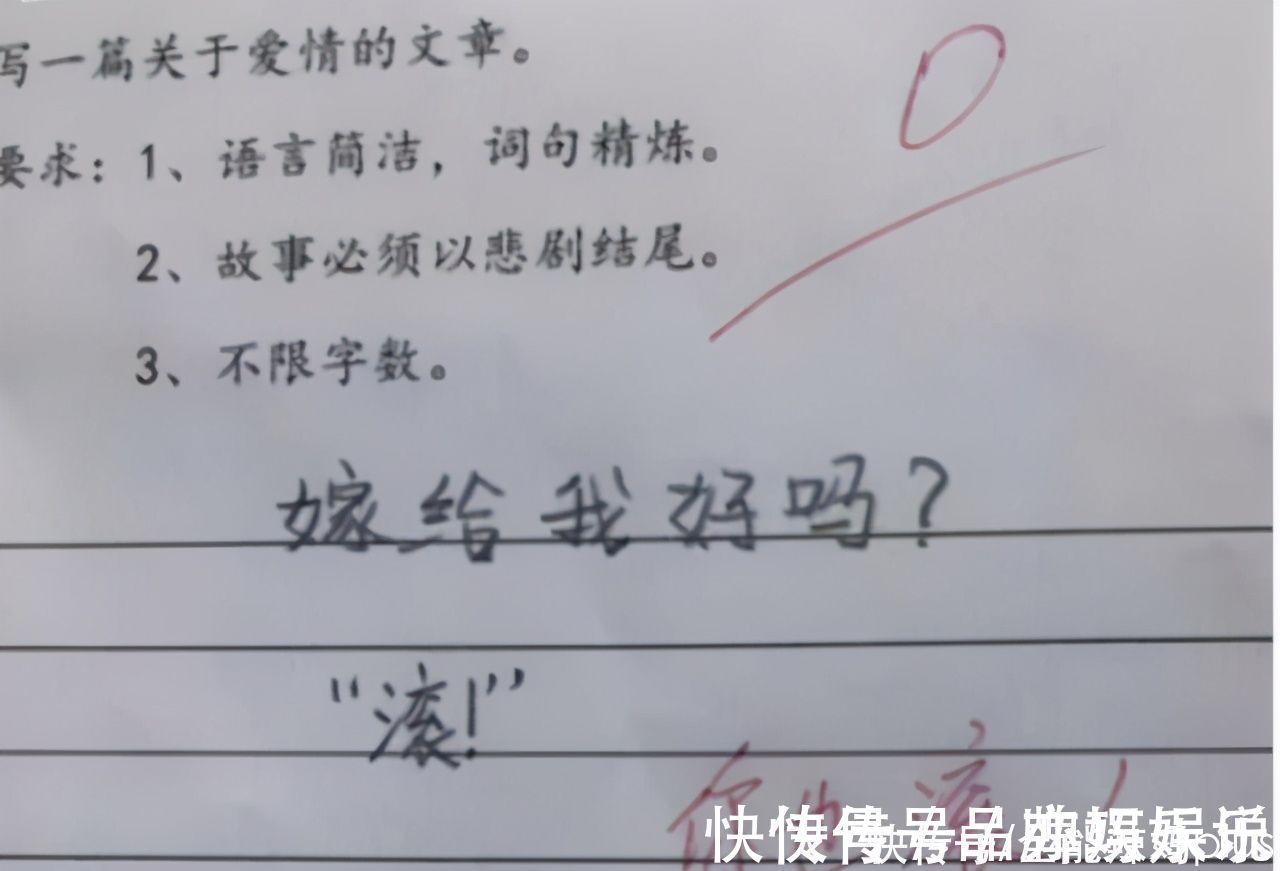 写一篇关于爱情的文章。
0
要求：1、语言简洁，词句精炼。
2、故事必须以悲剧结尾。
3、不限字数。
嫁给我好吗？
“滚！”
你也滚！